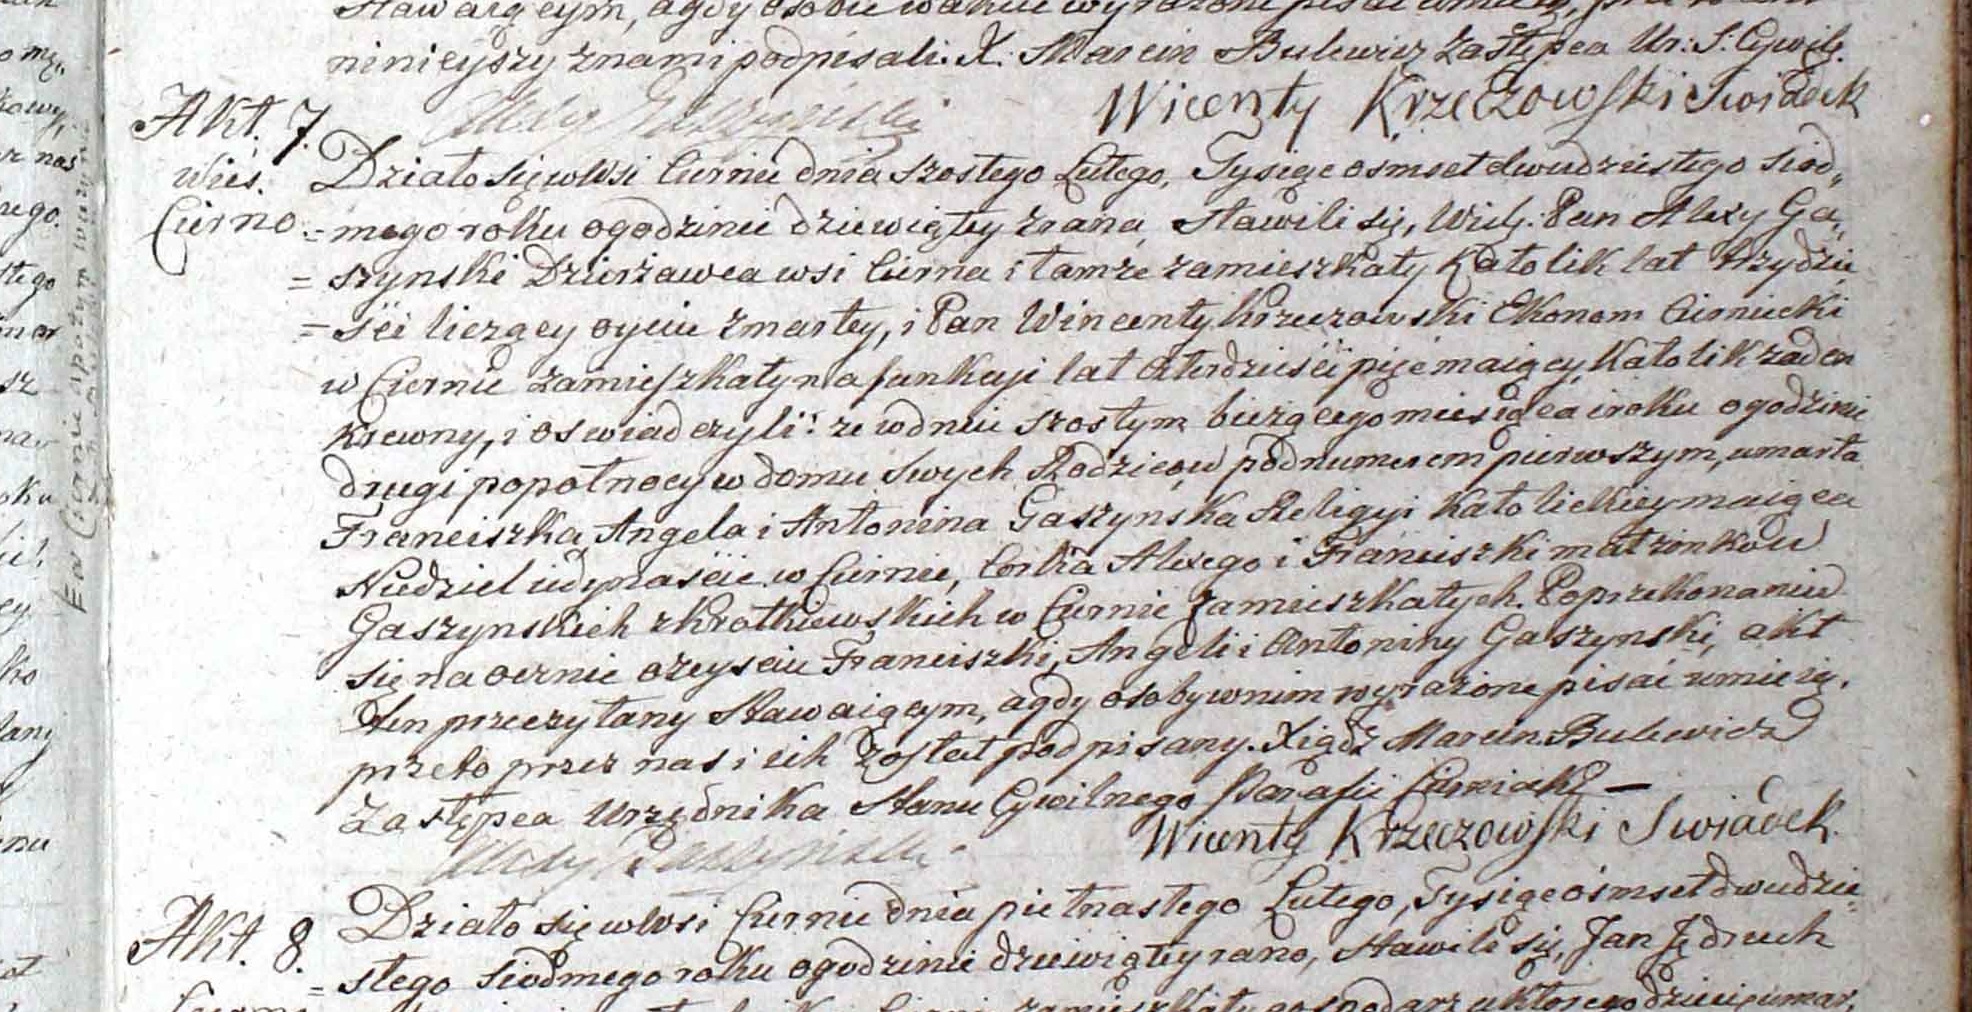 Stawaiącym, agdy osobie wakcie wyrażone pisać umieią,
ninieyszy znami podpisali. X. Marcin Bulewicz Zastępca Ur: S: Cywilg.
Wicenty Krzeczowski Swiadek
Akt. 7.
Wieś.
Cierno.
Działo się wWsi Ciernie dnia szostego Lutego, Tysiąc osmset dwudziestego siod„
=mego roku ogodzinie dziewiątey zrana Stawili się, Wielg. Pan Alexy Ga„
=szynski Dzierżawca wsi Cierna i tamże zamieszkały Katolik lat trzydzie
=ści liczący oyciec zmarłey, i Pan Wincenty Krzeczowski Ekonom Cierniecki
w Ciernie zamieszkały na funkcyi lat czterdzieści pięć maiący, Katolik żaden
Krewny, i oswiadczyli: ze wdniu szostym bieżącego miesiąca i roku ogodzinie
drugi popołnocy w domu swych Rodzicow podnumerem pierwszym, umarła
Franciszka Angela i Antonina Gaszynska Religyi Katolickiey maiąca
Niedziel iedynaście w Ciernie, Corka Alexego i Franciszki małżonkow
Gaszynskich z Krotkiewskich w Ciernie zamieszkałych. Poprzekonaniu
się naocznie ozeysciu Franciszki, Angeli i Antoniny Gaszynski, akt
ten przeczytany Stawaiącym, agdy osoby wnim wyrażone pisać umieią,
przeto przez nas i ich został podpisany. Xiądz Marcin Bulewicz
Zastępca Urzędnika Stanu Cywilnego Parafii Ciernieckiy —
Wicenty Krzeczowski Swiadek.
Alexy Gaszyński
Akt. 8.
Działo się wWsi Ciernie dnia pietnastego Lutego, Tysiąc ósmset dwudzie„
=stego siodmego roku ogodzinie dziewiątey rano, Stawili się, Jan Jędruch
zamieszkały gospodarz uktorego dziecię umar„